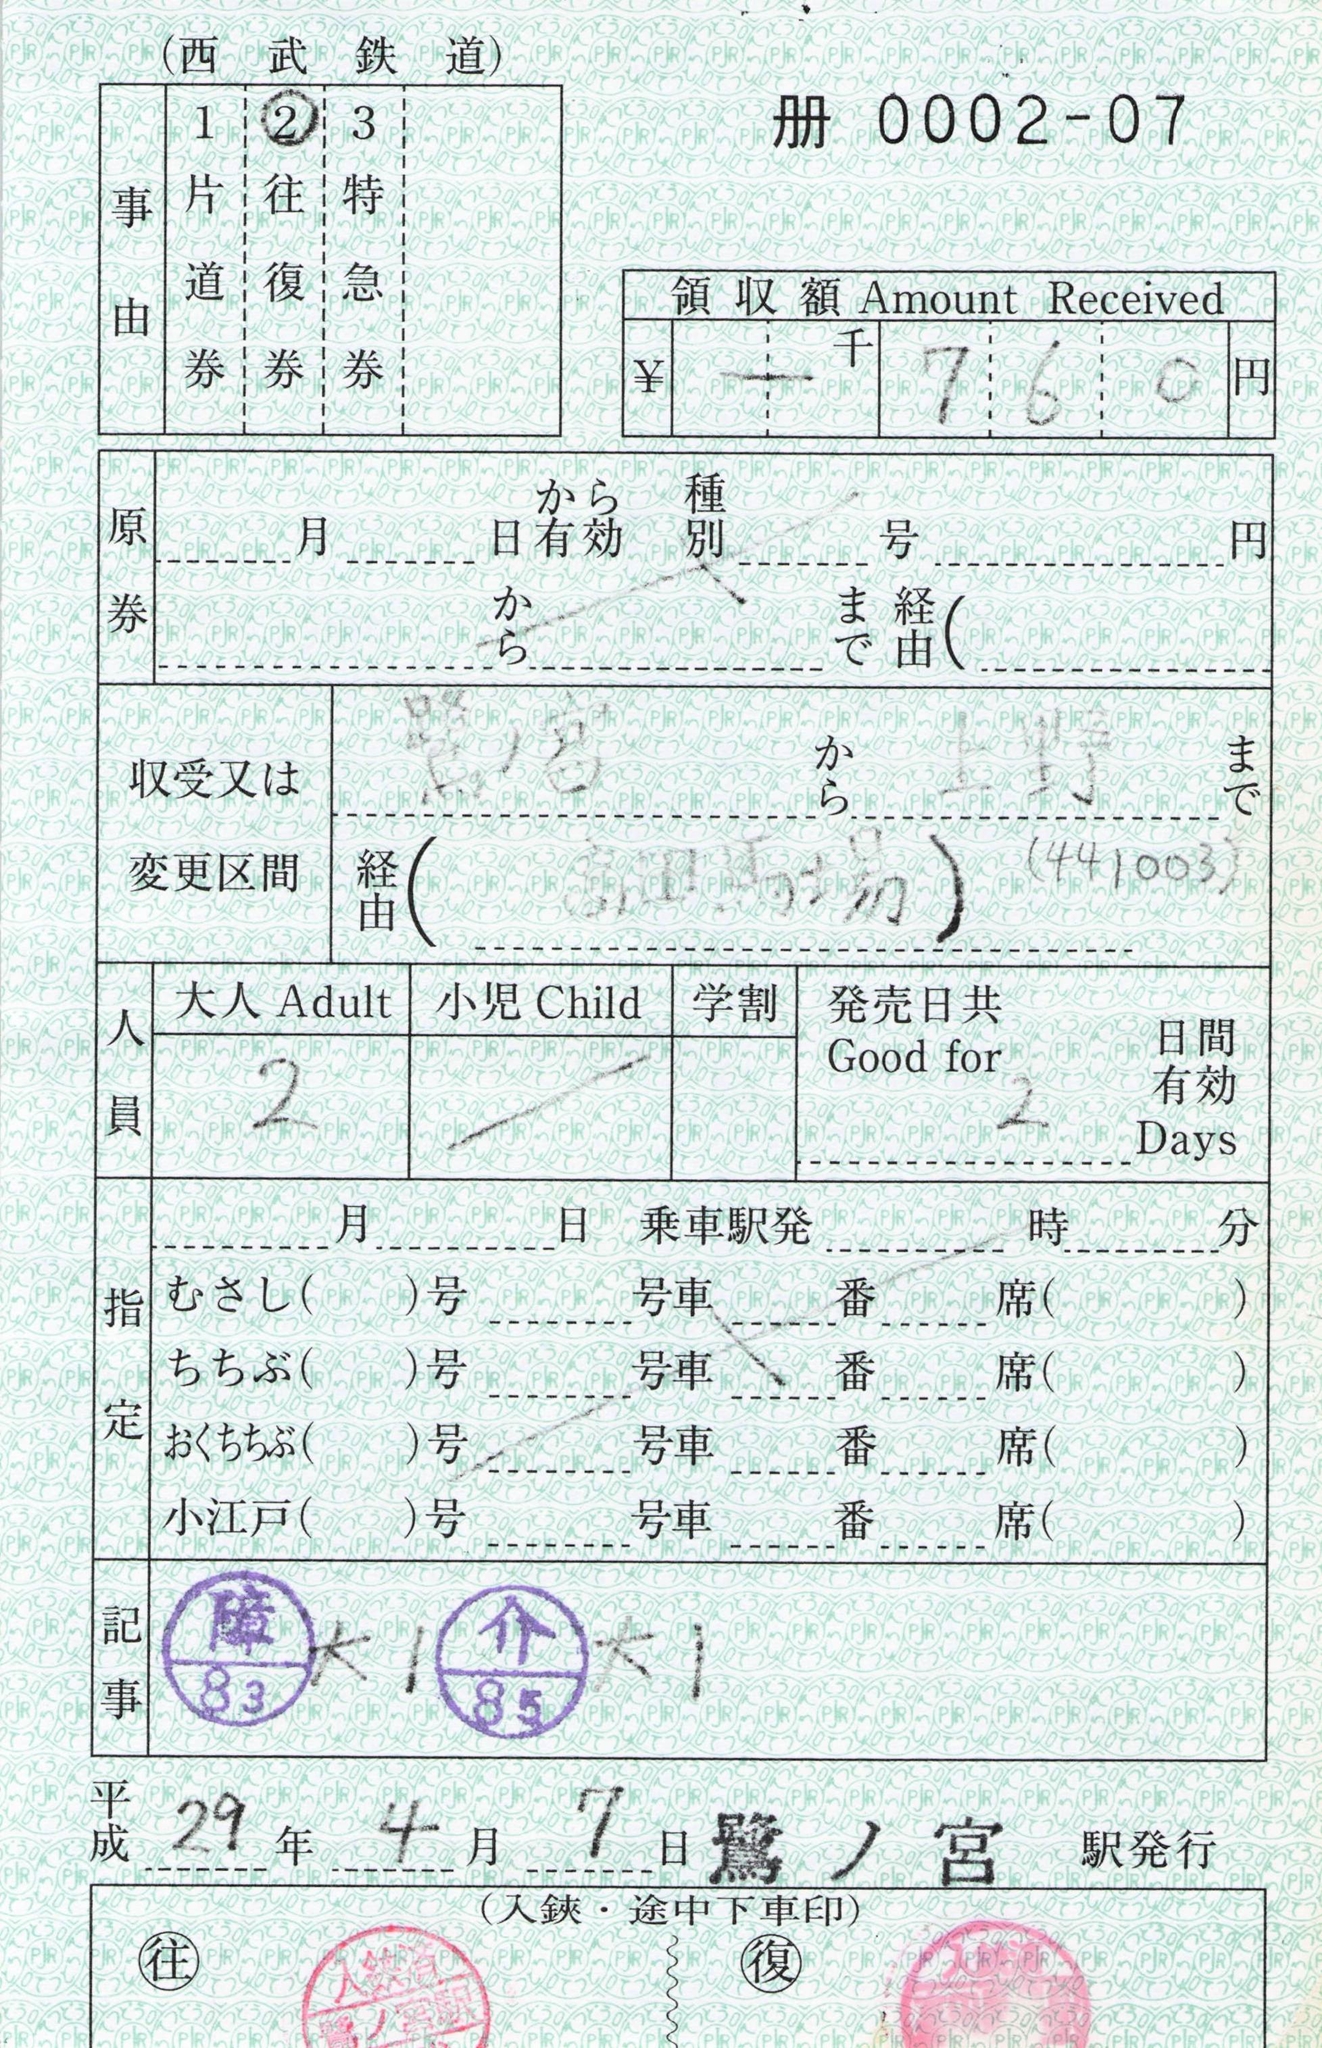 (西武鉄道)
冊 0002-07
事由
1片道券
2往復券
3特急券
領収額 Amount Received
¥ ー 千 7 6 0 円
原券
月 日から有効 種別 号 円
から まで 経由(
収受又は変更区間
鷺ノ宮 から 上野 まで
経由(高田馬場) (441003)
人員
大人 Adult 小児 Child 学割 発売日共 日間有効
2 Good for 2 Days
指定
月 日 乗車駅発 時 分
むさし( )号 号車 番 席( )
ちちぶ( )号 号車 番 席( )
おくちちぶ( )号 号車 番 席( )
小江戸( )号 号車 番 席( )
記事
障 83 大1 介 85 大1
平成 29 年 4 月 7 日 鷺ノ宮 駅発行
(入鋏・途中下車印)
往 復
入鋏省
鷺ノ宮駅